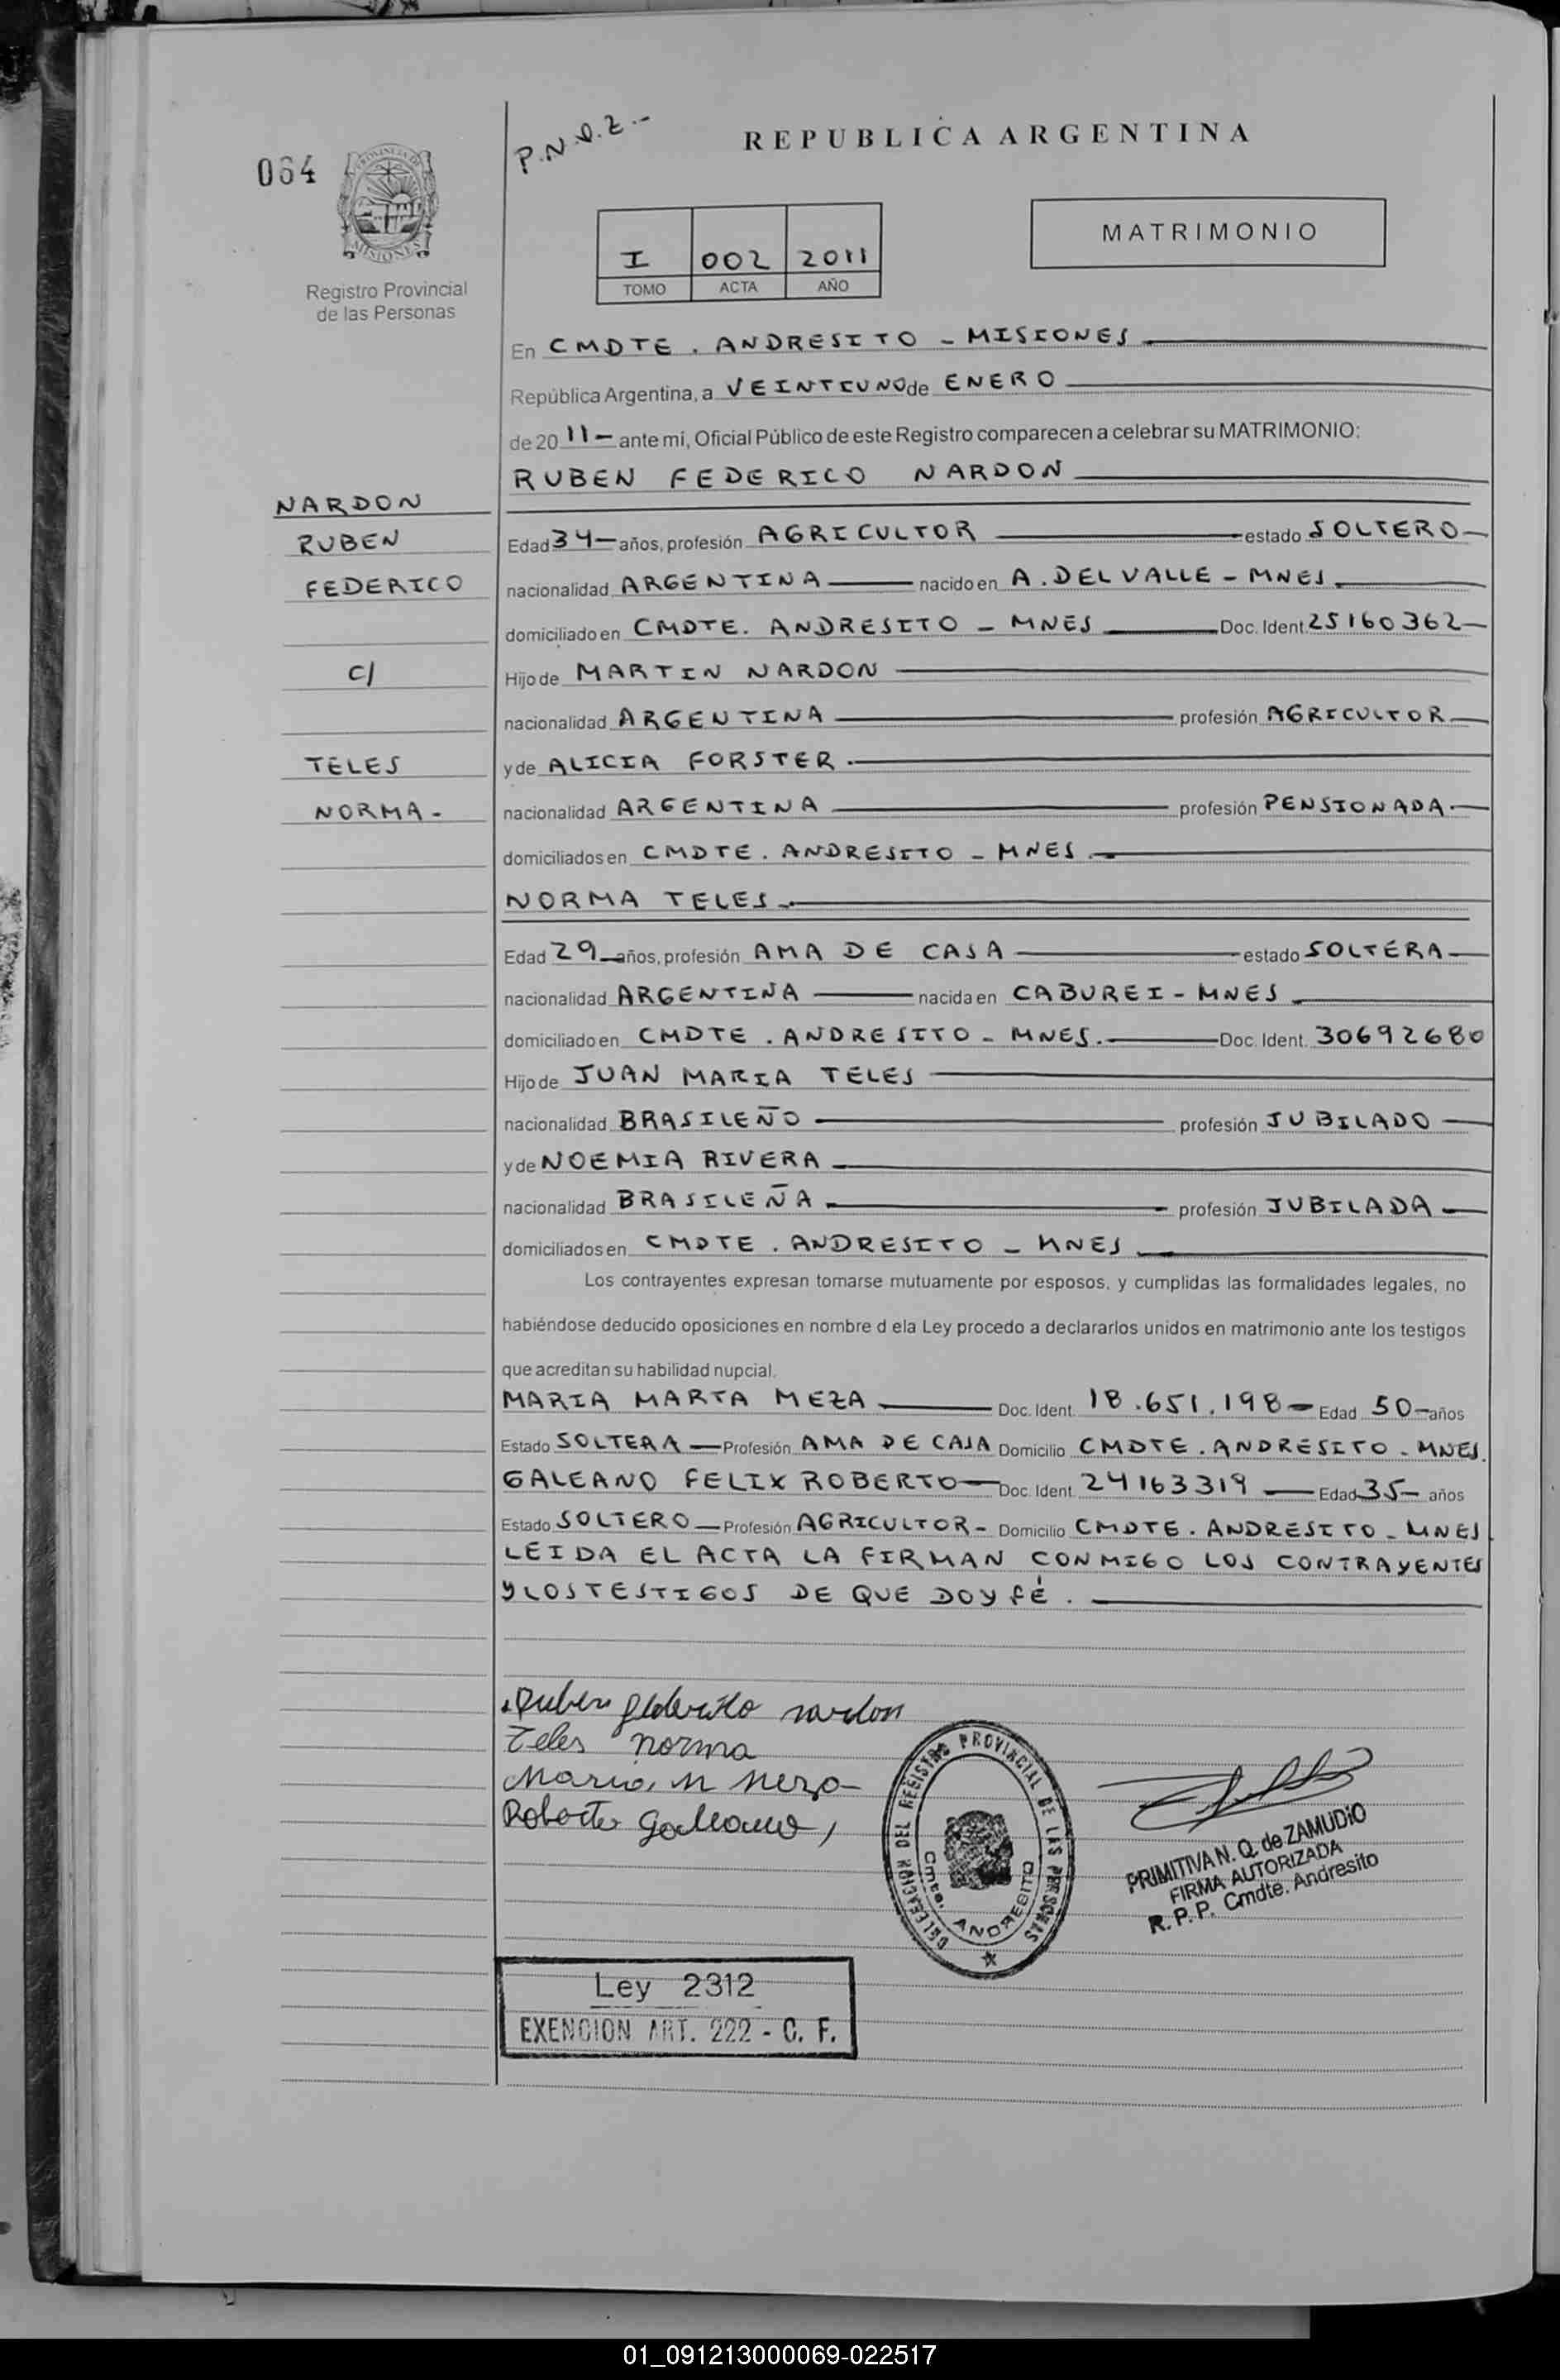 064
P.N.Q.Z.-
REPUBLICA ARGENTINA
PROVINCIA DE
MISIONES
Registro Provincial
de las Personas
I 002 2011
TOMO ACTA AÑO
MATRIMONIO
En CMDTE. ANDRESITO - MISIONES
República Argentina, a VEINTIUNO de ENERO
de 20 11- ante mí, Oficial Público de este Registro comparecen a celebrar su MATRIMONIO:
RUBEN FEDERICO NARDON
NARDON
RUBEN
FEDERICO
C/
TELES
NORMA-
Edad 34- años, profesión AGRICULTOR estado SOLTERO-
nacionalidad ARGENTINA nacido en A. DEL VALLE - MNES.
domiciliado en CMDTE. ANDRESITO - MNES Doc. Ident. 25160362-
Hijo de MARTIN NARDON
nacionalidad ARGENTINA profesión AGRICULTOR
y de ALICIA FORSTER.
nacionalidad ARGENTINA profesión PENSIONADA
domiciliados en CMDTE. ANDRESITO - MNES.
NORMA TELES.
Edad 29 años, profesión AMA DE CASA estado SOLTERA
nacionalidad ARGENTINA nacida en CABUREI - MNES.
domiciliado en CMDTE. ANDRESITO - MNES. Doc. Ident. 30692680
Hijo de JUAN MARIA TELES
nacionalidad BRASILEÑO profesión JUBILADO
y de NOEMIA RIVERA
nacionalidad BRASILEÑA profesión JUBILADA
domiciliados en CMDTE. ANDRESITO - MNES
Los contrayentes expresan tomarse mutuamente por esposos, y cumplidas las formalidades legales, no
habiéndose deducido oposiciones en nombre d ela Ley procedo a declararlos unidos en matrimonio ante los testigos
que acreditan su habilidad nupcial.
MARIA MARTA MEZA Doc. Ident. 18.651.198- Edad 50- años
Estado SOLTERA Profesión AMA DE CASA Domicilio CMDTE. ANDRESITO - MNES.
GALEANO FELIX ROBERTO Doc. Ident. 24163319 Edad 35- años
Estado SOLTERO Profesión AGRICULTOR- Domicilio CMDTE. ANDRESITO - MNES.
LEIDA EL ACTA LA FIRMAN CONMIGO LOS CONTRAYENTES
Y LOS TESTIGOS DE QUE DOY FÉ.
Ruben federico nardon
Teles norma
Maria M Meza
Roberto Galeano
DELEGACION DEL REGISTRO PROVINCIAL DE LAS PERSONAS
Cmte. ANDRESITO
PRIMITIVA N. Q. de ZAMUDIO
FIRMA AUTORIZADA
R. P. P. Cmdte. Andresito
Ley 2312
EXENCION ART. 222 - C. F.
01_091213000069-022517